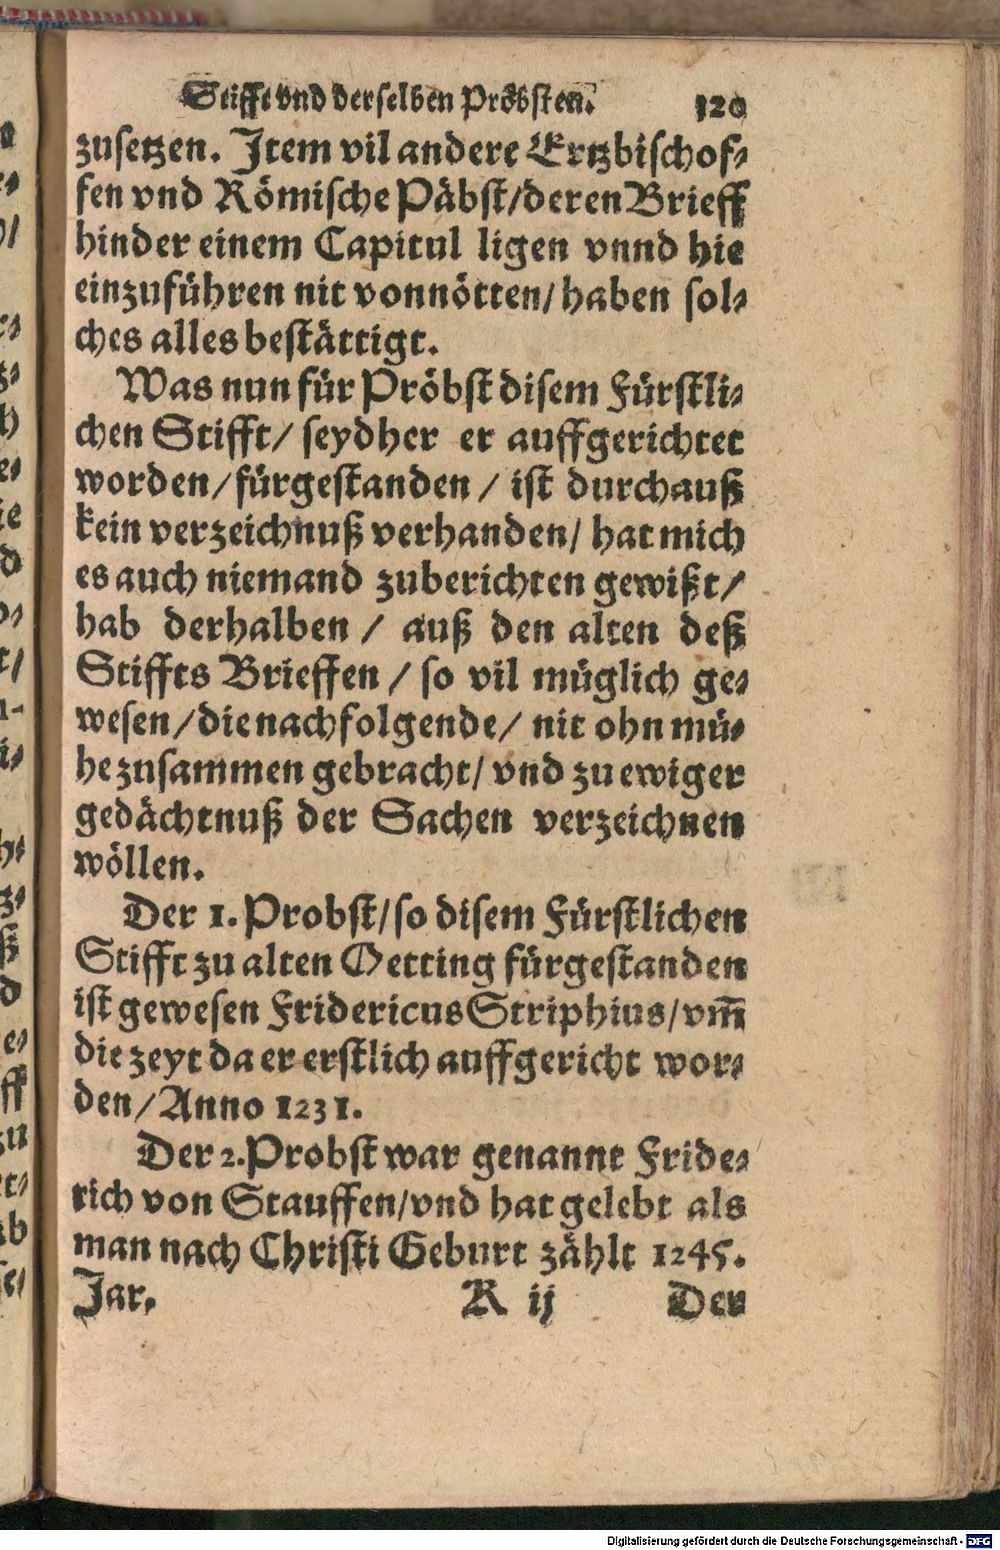 Stifft vnd derselben Pröbsten. 120
zusetzen. Item vil andere Ertzbischof⸗
fen vnd Römische Päbst/deren Brieff
hinder einem Capitul ligen vnnd hie
einzuführen nit vonnötten/haben sol⸗
ches alles bestättigt.
Was nun für Pröbst disem Fürstli⸗
chen Stifft/ seydher er auffgerichtet
worden/fürgestanden/ ist durchauß
kein verzeichnuß verhanden/ hat mich
es auch niemand zuberichten gewißt/
hab derhalben/ auß den alten deß
Stiffts Brieffen/ so vil müglich ge⸗
wesen/die nachfolgende/ nit ohn mü⸗
he zusammen gebracht/ vnd zu ewiger
gedächtnuß der Sachen verzeichnen
wöllen.
Der 1. Probst/so disem Fürstlichen
Stifft zu alten Oetting fürgestanden
ist gewesen Fridericus Striphius/vm̄
die zeyt da er erstlich auffgericht wor⸗
den/Anno 1231.
Der 2. Probst war genannt Fride⸗
rich von Stauffen/vnd hat gelebt als
man nach Christi Geburt zählt 1245.
Jar.
R ij
Der
Digitalisierung gefördert durch die Deutsche Forschungsgemeinschaft - DFG